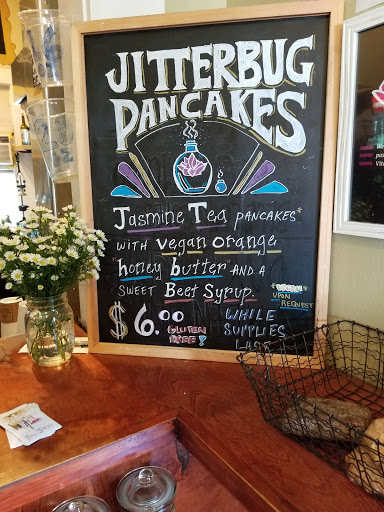 JITTERBUG
PANCAKES
Jasmine Tea PANCAKES*
WITH vegan orange
"honey butter" AND A
SWEET Beet Syrup.
*VEGAN*
UPON
REQUEST
$6.00 GLUTEN
FREE!
WHILE
SUPPLIES
LAST